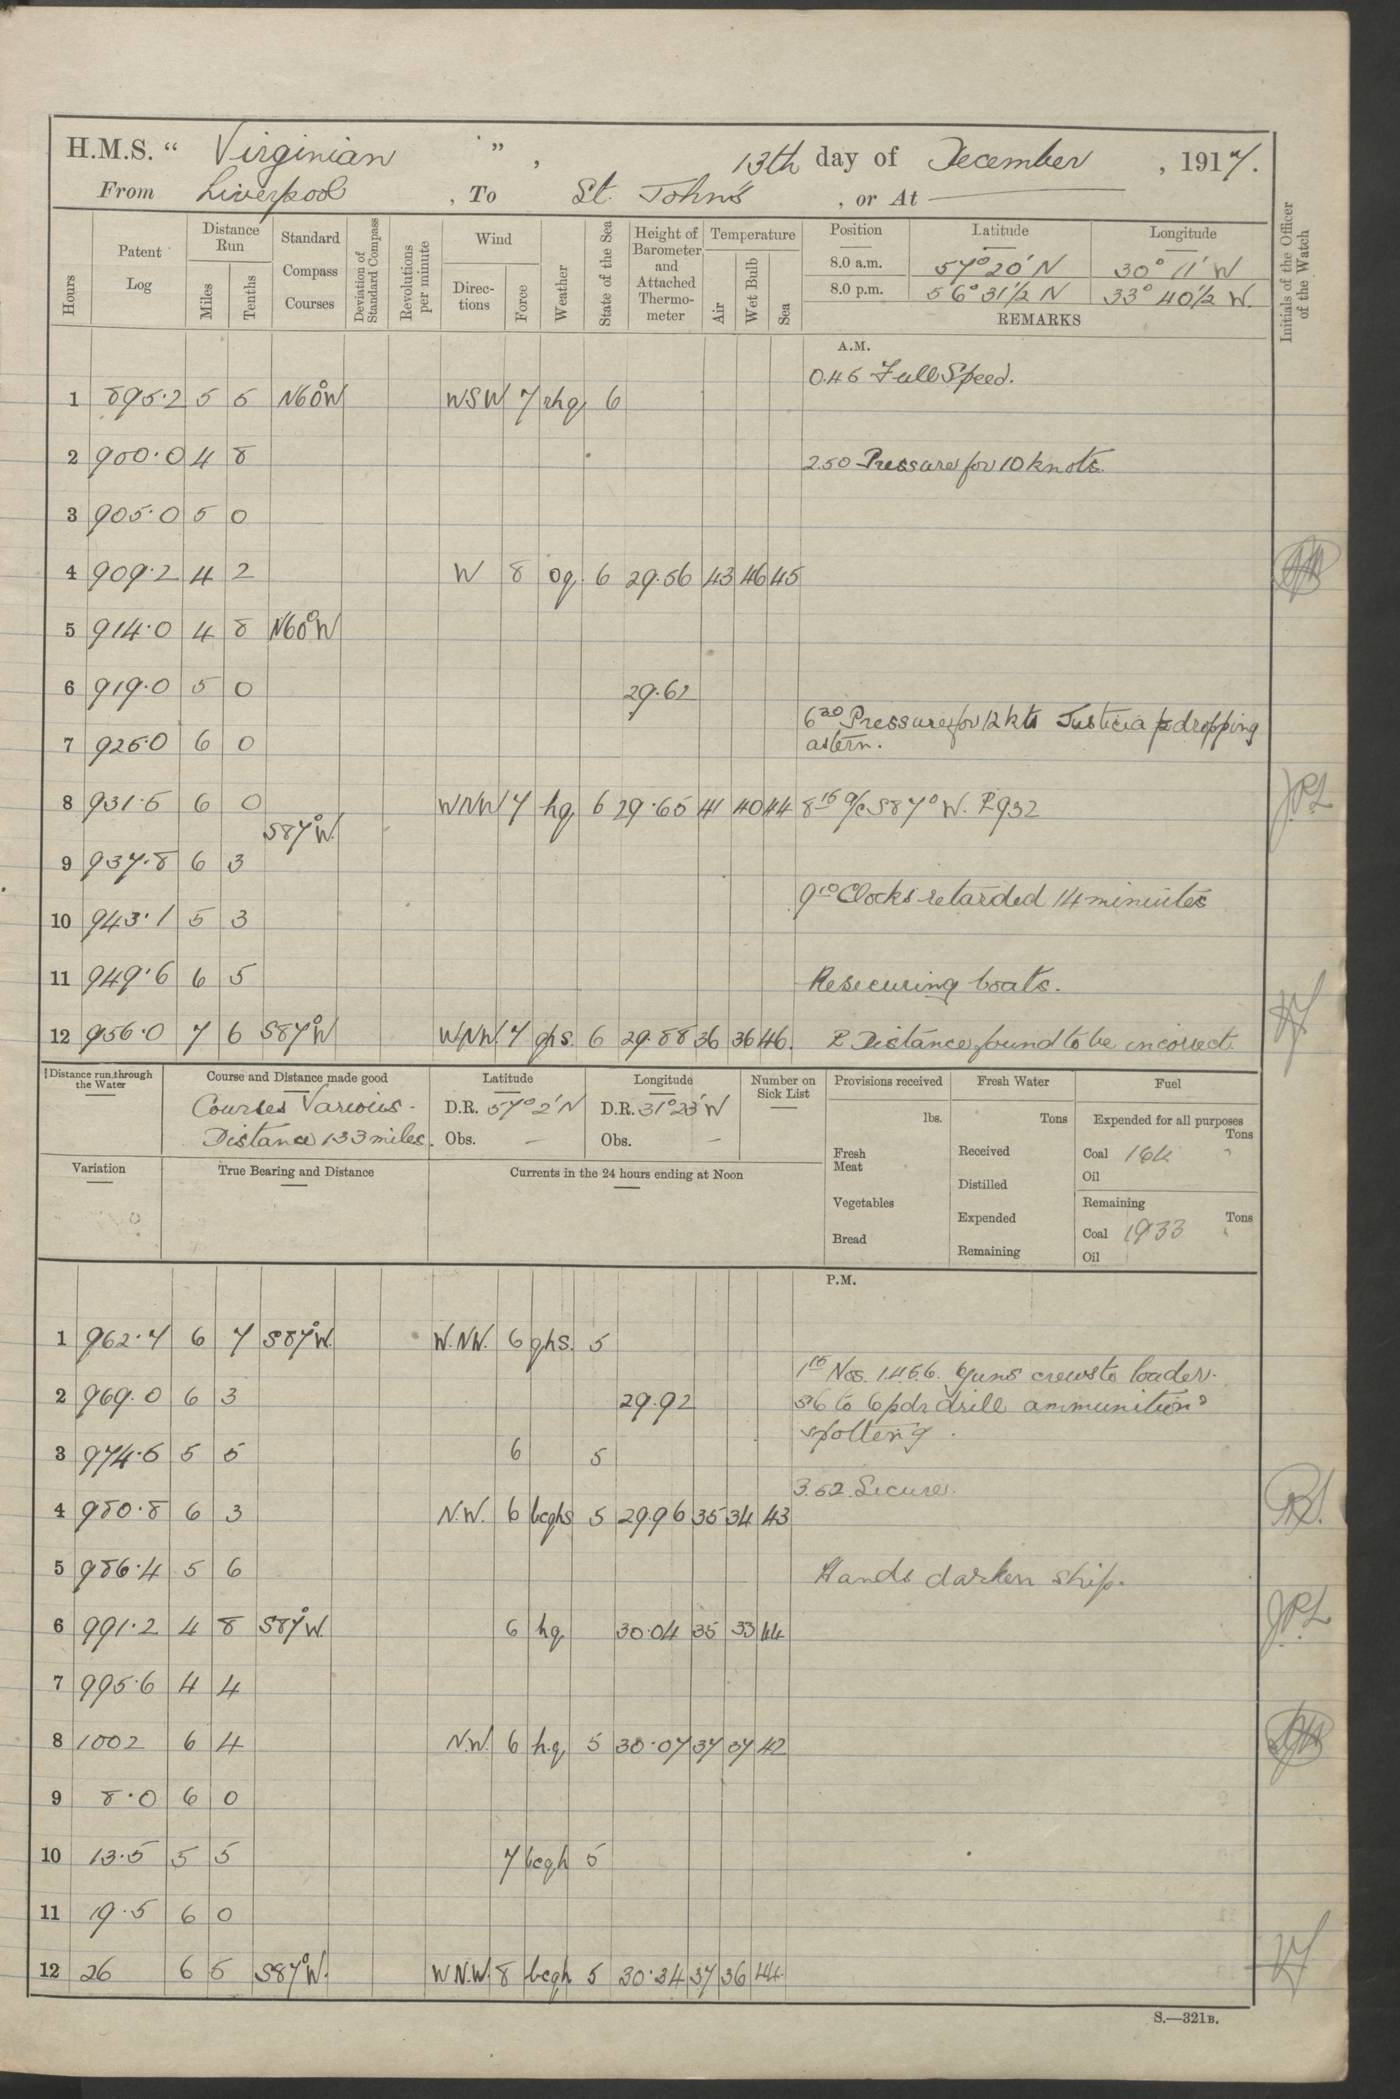 H.M.S. “ Virginian ” , 13th day of December , 1917.
From Liverpool , To St. John's , or At —
Hours
Patent Log
Distance Run
Miles
Tenths
Standard Compass Courses
Deviation of Standard Compass
Revolutions per minute
Wind
Directions
Force
Weather
State of the Sea
Height of Barometer and Attached Thermometer
Temperature
Air
Wet Bulb
Sea
Position Latitude Longitude
8.0 a.m. 57° 20' N 30° 11' W
8.0 p.m. 56° 31½ N 33° 40½ W.
REMARKS
Initials of the Officer of the Watch
A.M.
0.45 Full Speed.
1 895.2 5 5 N60°W WSW 7 6
2 900.0 4 8 2.50 Pressure for 10 knots.
3 905.0 5 0
4 909.2 4 2 W 8 og 6 29.56 43 46 45
5 914.0 4 8 N60°W
6 919.0 5 0 29.62
6 30 Pressure for 12 kts Justicia dropping
7 925.0 6 0 astern.
8 931.5 6 0 WNW 7 hq 6 29.65 41 40 44 8 15 a/c S87°W. PL 932
S87°W.
9 937.8 6 3
9 10 Clocks retarded 14 minutes
10 943.1 5 3
11 949.6 6 5 Resecuring boats.
12 956.0 7 6 S87°W WNW. 7 qhs. 6 29.88 36 36 46. Distance found to be incorrect.
Distance run through the Water
Course and Distance made good
Courses Various.
Distance 133 miles.
Latitude
D.R. 57° 2' N
Obs. —
Longitude
D.R. 31° 23' W
Obs. —
Number on Sick List
Provisions received
lbs.
Fresh Meat
Vegetables
Bread
Fresh Water
Tons
Received
Distilled
Expended
Remaining
Fuel
Expended for all purposes
Tons
Coal 164
Oil
Remaining
Tons
Coal 1933
Oil
Variation
True Bearing and Distance
Currents in the 24 hours ending at Noon
P.M.
1 962.7 6 7 S87°W. W.NW. 6 qhs. 5
1 15 Nos. 1.4.5.6. Guns crews to loader.
2 969.0 6 3 29.92 3 & 6 to 6 pdr drill ammunition &
spotting.
3 974.5 5 5 6 5
3.52. Secure.
4 980.8 6 3 N.W. 6 bcqhs 5 29.96 35 34 43
5 986.4 5 6 Hands darken ship.
6 991.2 4 8 S87°W. 6 hq. 30.04 35 33 44
7 995.6 4 4
8 1002 6 4 N.W. 6 h.q. 5 30.07 37 37 42
9 8.0 6 0
10 13.5 5 5 7 bcqh 5
11 19.5 6 0
12 26 6 5 S87°W. W.N.W. 8 bcqh 5 30.34 37 36 44
S.—321B.